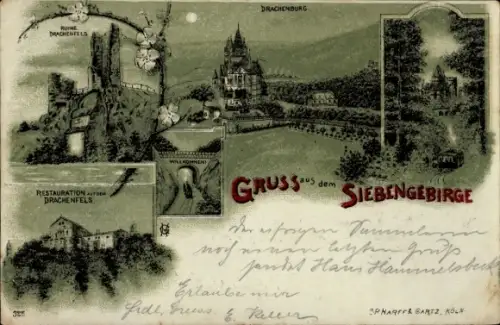 RUINE
DRACHENFELS
DRACHENBURG
WILLKOMMEN!
RESTAURATION AUF DEM
DRACHENFELS
GRUSS aus dem SIEBENGEBIRGE
Der eifrigen Sammlerin
noch einen letzten Gruß
sendet Hans Hammelsbeck
Erlaube mir
Frdl. Gruss E. Keller
HARFF & BARTZ, KÖLN